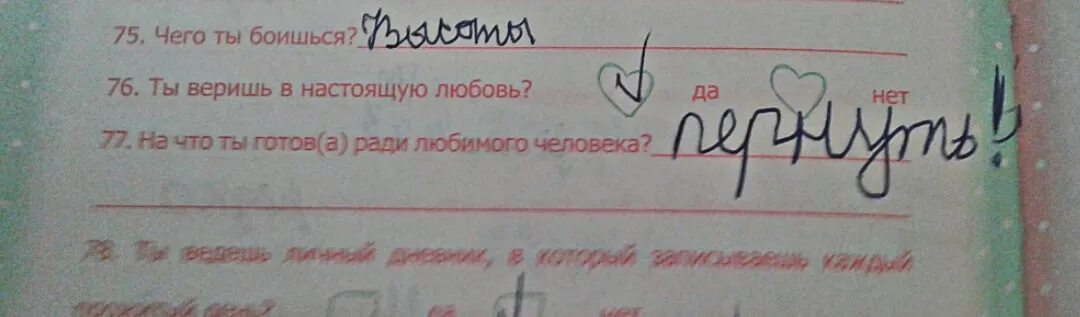 75. Чего ты боишься? Высоты
76. Ты веришь в настоящую любовь? да нет
77. На что ты готов(а) ради любимого человека? пернуть!
78. Ты ведешь личный дневник, в который записываешь каждый
прожитый день? да нет